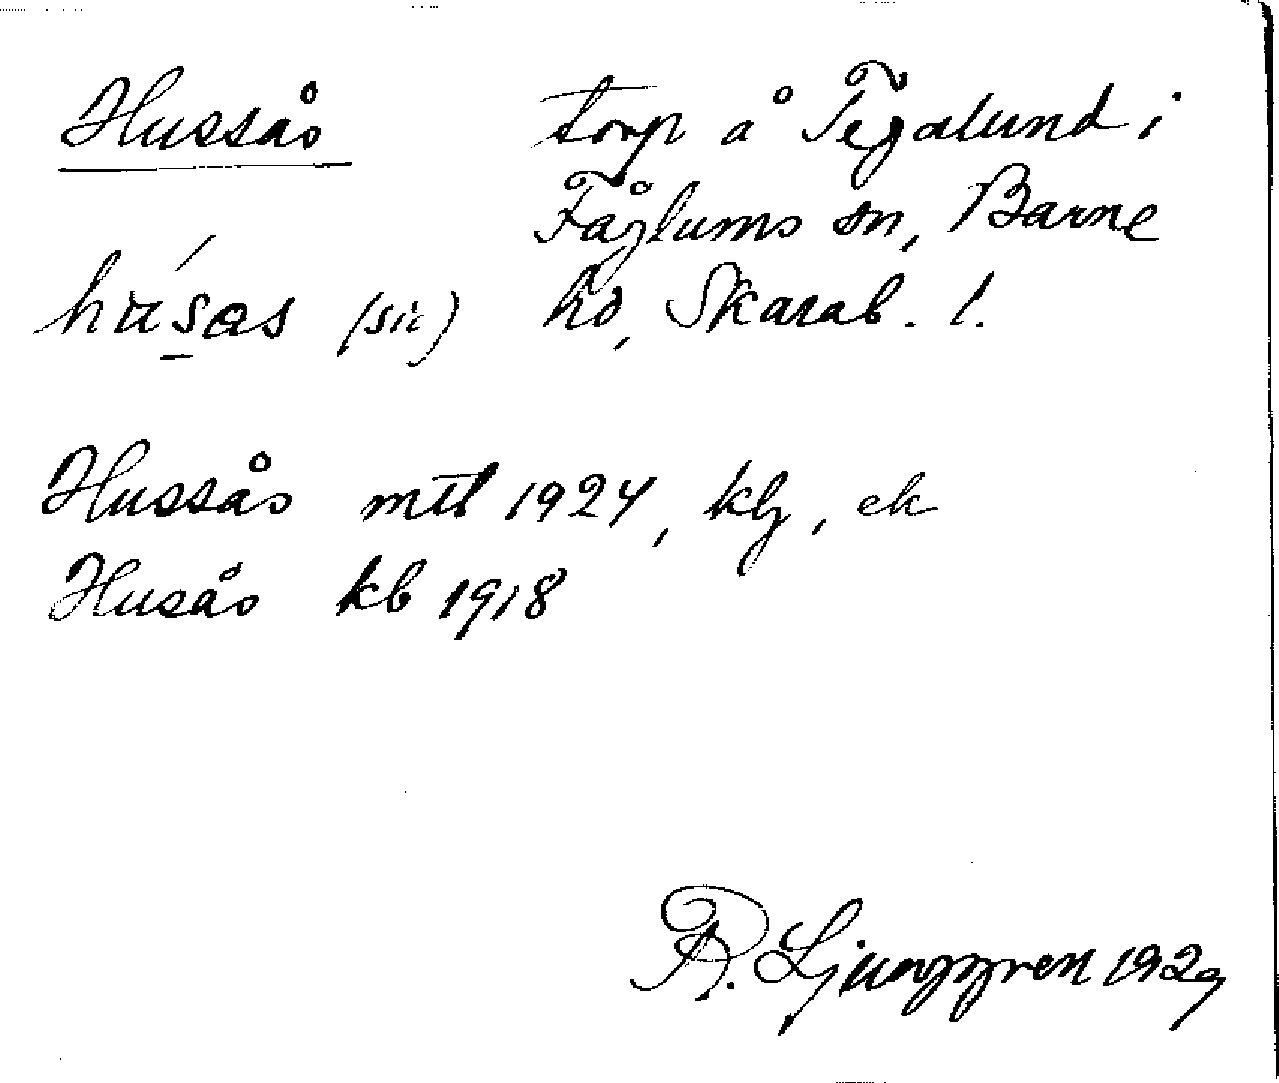 Hussås torp å Tegalund i
Fåglums sn, Barne
húsas (sic) hd, Skarab. l.
Hussås mtl 1924, klj, ek
Husås kb 1918
R. Ljunggren 1929